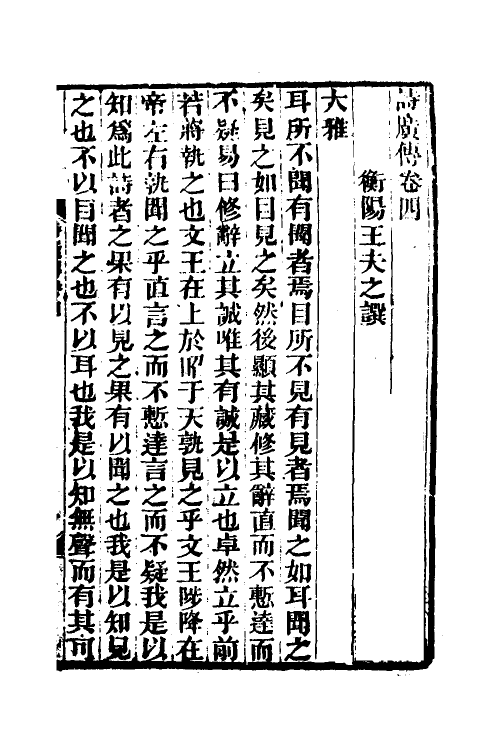 詩廣傳卷四
衡陽王夫之譔
大雅
耳所不聞有聞者焉目所不見有見者焉聞之如耳聞之
矣見之如目見之矣然後顯其藏修其辭直而不慙達而
不疑易曰修辭立其誠唯其有誠是以立也卓然立乎前
若將執之也文王在上於昭于天孰見之乎文王陟降在
帝左右孰聞之乎直言之而不慙達言之而不疑我是以
知爲此詩者之果有以見之果有以聞之也我是以知見
之也不以目聞之也不以耳也我是以知無聲而有其可